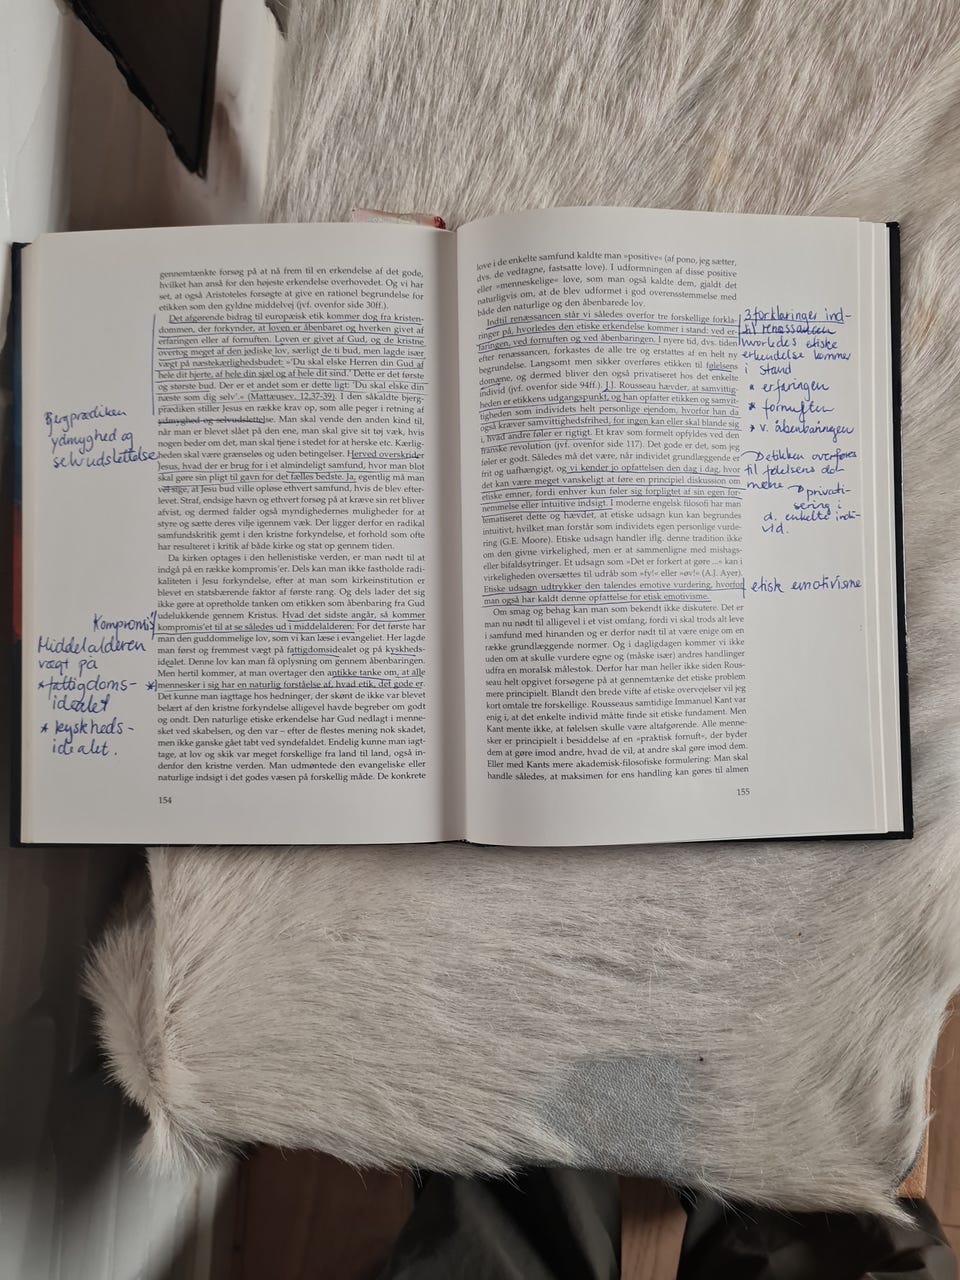 gennemtænkte forsøg på at nå frem til en erkendelse af det gode,
hvilket han anså for den højeste erkendelse overhovedet. Og vi har
set, at også Aristoteles forsøgte at give en rational begrundelse for
etikken som den gyldne middelvej (jvf. ovenfor side 30ff.).
Det afgørende bidrag til europæisk etik kommer dog fra kristen-
dommen, der forkynder, at loven er åbenbaret og hverken givet af
erfaringen eller af fornuften. Loven er givet af Gud, og de kristne
overtog meget af den jødiske lov, særligt de ti bud, men lagde især
vægt på næstekærlighedsbudet: »'Du skal elske Herren din Gud af
hele dit hjerte, af hele din sjæl og af hele dit sind.' Dette er det første
og største bud. Der er et andet som er dette ligt: 'Du skal elske din
næste som dig selv'.« (Mattæusev. 12,37-39). I den såkaldte bjerg-
prædiken stiller Jesus en række krav op, som alle peger i retning af
ydmyghed og selvudslettelse. Man skal vende den anden kind til,
når man er blevet slået på den ene, man skal give sit tøj væk, hvis
nogen beder om det, man skal tjene i stedet for at herske etc. Kærlig-
heden skal være grænseløs og uden betingelser. Herved overskrider
Jesus, hvad der er brug for i et almindeligt samfund, hvor man blot
skal gøre sin pligt til gavn for det fælles bedste. Ja, egentlig må man
vel sige, at Jesu bud ville opløse ethvert samfund, hvis de blev efter-
levet. Straf, endsige hævn og ethvert forsøg på at kræve sin ret bliver
afvist, og dermed falder også myndighedernes muligheder for at
styre og sætte deres vilje igennem væk. Der ligger derfor en radikal
samfundskritik gemt i den kristne forkyndelse, et forhold som ofte
har resulteret i kritik af både kirke og stat op gennem tiden.
Da kirken optages i den hellenistiske verden, er man nødt til at
indgå på en række kompromis'er. Dels kan man ikke fastholde radi-
kaliteten i Jesu forkyndelse, efter at man som kirkeinstitution er
blevet en statsbærende faktor af første rang. Og dels lader det sig
ikke gøre at opretholde tanken om etikken som åbenbaring fra Gud
udelukkende gennem Kristus. Hvad det sidste angår, så kommer
kompromis'et til at se således ud i middelalderen: For det første har
man den guddommelige lov, som vi kan læse i evangeliet. Her lagde
man først og fremmest vægt på fattigdomsidealet og på kyskheds-
idealet. Denne lov kan man få oplysning om gennem åbenbaringen.
Men hertil kommer, at man overtager den antikke tanke om, at alle
mennesker i sig har en naturlig forståelse af, hvad etik, det gode er.
Det kunne man iagttage hos hedninger, der skønt de ikke var blevet
belært af den kristne forkyndelse alligevel havde begreber om godt
og ondt. Den naturlige etiske erkendelse har Gud nedlagt i menne-
sket ved skabelsen, og den var – efter de flestes mening nok skadet,
men ikke ganske gået tabt ved syndefaldet. Endelig kunne man iagt-
tage, at lov og skik var meget forskellige fra land til land, også in-
denfor den kristne verden. Man udmøntede den evangeliske eller
naturlige indsigt i det godes væsen på forskellig måde. De konkrete
154
Bjergprædiken
ydmyghed og
selvudslettelse
Kompromis
Middelalderen
vægt på
* fattigdoms-
idealet
* kyskheds-
idealet.
love i de enkelte samfund kaldte man »positive« (af pono, jeg sætter,
dvs. de vedtagne, fastsatte love). I udformningen af disse positive
eller »menneskelige« love, som man også kaldte dem, gjaldt det
naturligvis om, at de blev udformet i god overensstemmelse med
både den naturlige og den åbenbarede lov.
Indtil renæssancen står vi således overfor tre forskellige forkla-
ringer på, hvorledes den etiske erkendelse kommer i stand: ved er-
faringen, ved fornuften og ved åbenbaringen. I nyere tid, dvs. tiden
efter renæssancen, forkastes de alle tre og erstattes af en helt ny
begrundelse. Langsomt men sikker overføres etikken til følelsens
domæne, og dermed bliver den også privatiseret hos det enkelte
individ (jvf. ovenfor side 94ff.). J.J. Rousseau hævder, at samvittig-
heden er etikkens udgangspunkt, og han opfatter etikken og samvit-
tigheden som individets helt personlige ejendom, hvorfor han da
også kræver samvittighedsfrihed, for ingen kan eller skal blande sig
i, hvad andre føler er rigtigt. Et krav som formelt opfyldes ved den
franske revolution (jvf. ovenfor side 117). Det gode er det, som jeg
føler er godt. Således må det være, når individet grundlæggende er
frit og uafhængigt, og vi kender jo opfattelsen den dag i dag, hvor
det kan være meget vanskeligt at føre en principiel diskussion om
etiske emner, fordi enhver kun føler sig forpligtet af sin egen for-
nemmelse eller intuitive indsigt. I moderne engelsk filosofi har man
tematiseret dette og hævdet, at etiske udsagn kun kan begrundes
intuitivt, hvilket man forstår som individets egen personlige vurde-
ring (G.E. Moore). Etiske udsagn handler iflg. denne tradition ikke
om den givne virkelighed, men er at sammenligne med mishags-
eller bifaldsytringer. Et udsagn som »Det er forkert at gøre ...« kan i
virkeligheden oversættes til udråb som »fy!« eller »øv!« (A.J. Ayer).
Etiske udsagn udtrykker den talendes emotive vurdering, hvorfor
man også har kaldt denne opfattelse for etisk emotivisme.
Om smag og behag kan man som bekendt ikke diskutere. Det er
man nu nødt til alligevel i et vist omfang, fordi vi skal trods alt leve
i samfund med hinanden og er derfor nødt til at være enige om en
række grundlæggende normer. Og i dagligdagen kommer vi ikke
uden om at skulle vurdere egne og (måske især) andres handlinger
udfra en moralsk målestok. Derfor har man heller ikke siden Rous-
seau helt opgivet forsøgene på at gennemtænke det etiske problem
mere principielt. Blandt den brede vifte af etiske overvejelser vil jeg
kort omtale tre forskellige. Rousseaus samtidige Immanuel Kant var
enig i, at det enkelte individ måtte finde sit etiske fundament. Men
Kant mente ikke, at følelsen skulle være altafgørende. Alle menne-
sker er principielt i besiddelse af en »praktisk fornuft«, der byder
dem at gøre imod andre, hvad de vil, at andre skal gøre imod dem.
Eller med Kants mere akademisk-filosofiske formulering: Man skal
handle således, at maksimen for ens handling kan gøres til almen
155
3 forklaringer ind-
til renæssancen
hvorledes etiske
erkendelse kommer
i stand
* erfaringen
* fornuften
* v. åbenbaringen
etikken overføres
til følelsens do-
mæne
privati-
sering i
d. enkelte indi-
vid.
etisk emotivisme